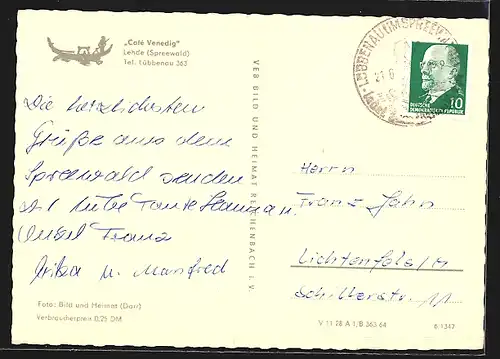 „Café Venedig“
Lehde (Spreewald)
Tel. Lübbenau 363
Die herzlichsten
Grüße aus dem
Spreewald senden
Tante
Onkel Franz
u. Manfred
Foto: Bild und Heimat (Darr)
Verbraucherpreis 0,25 DM
VEB BILD UND HEIMAT REICHENBACH I. V.
LÜBBENAU IM SPREEWALD
DEUTSCHE
DEMOKRATISCHE REPUBLIK
10
Herrn
Franz Jahn
Lichtenfels/M
Schillerstr. 11
V 11 28 A 1/B 363 64
6/1347